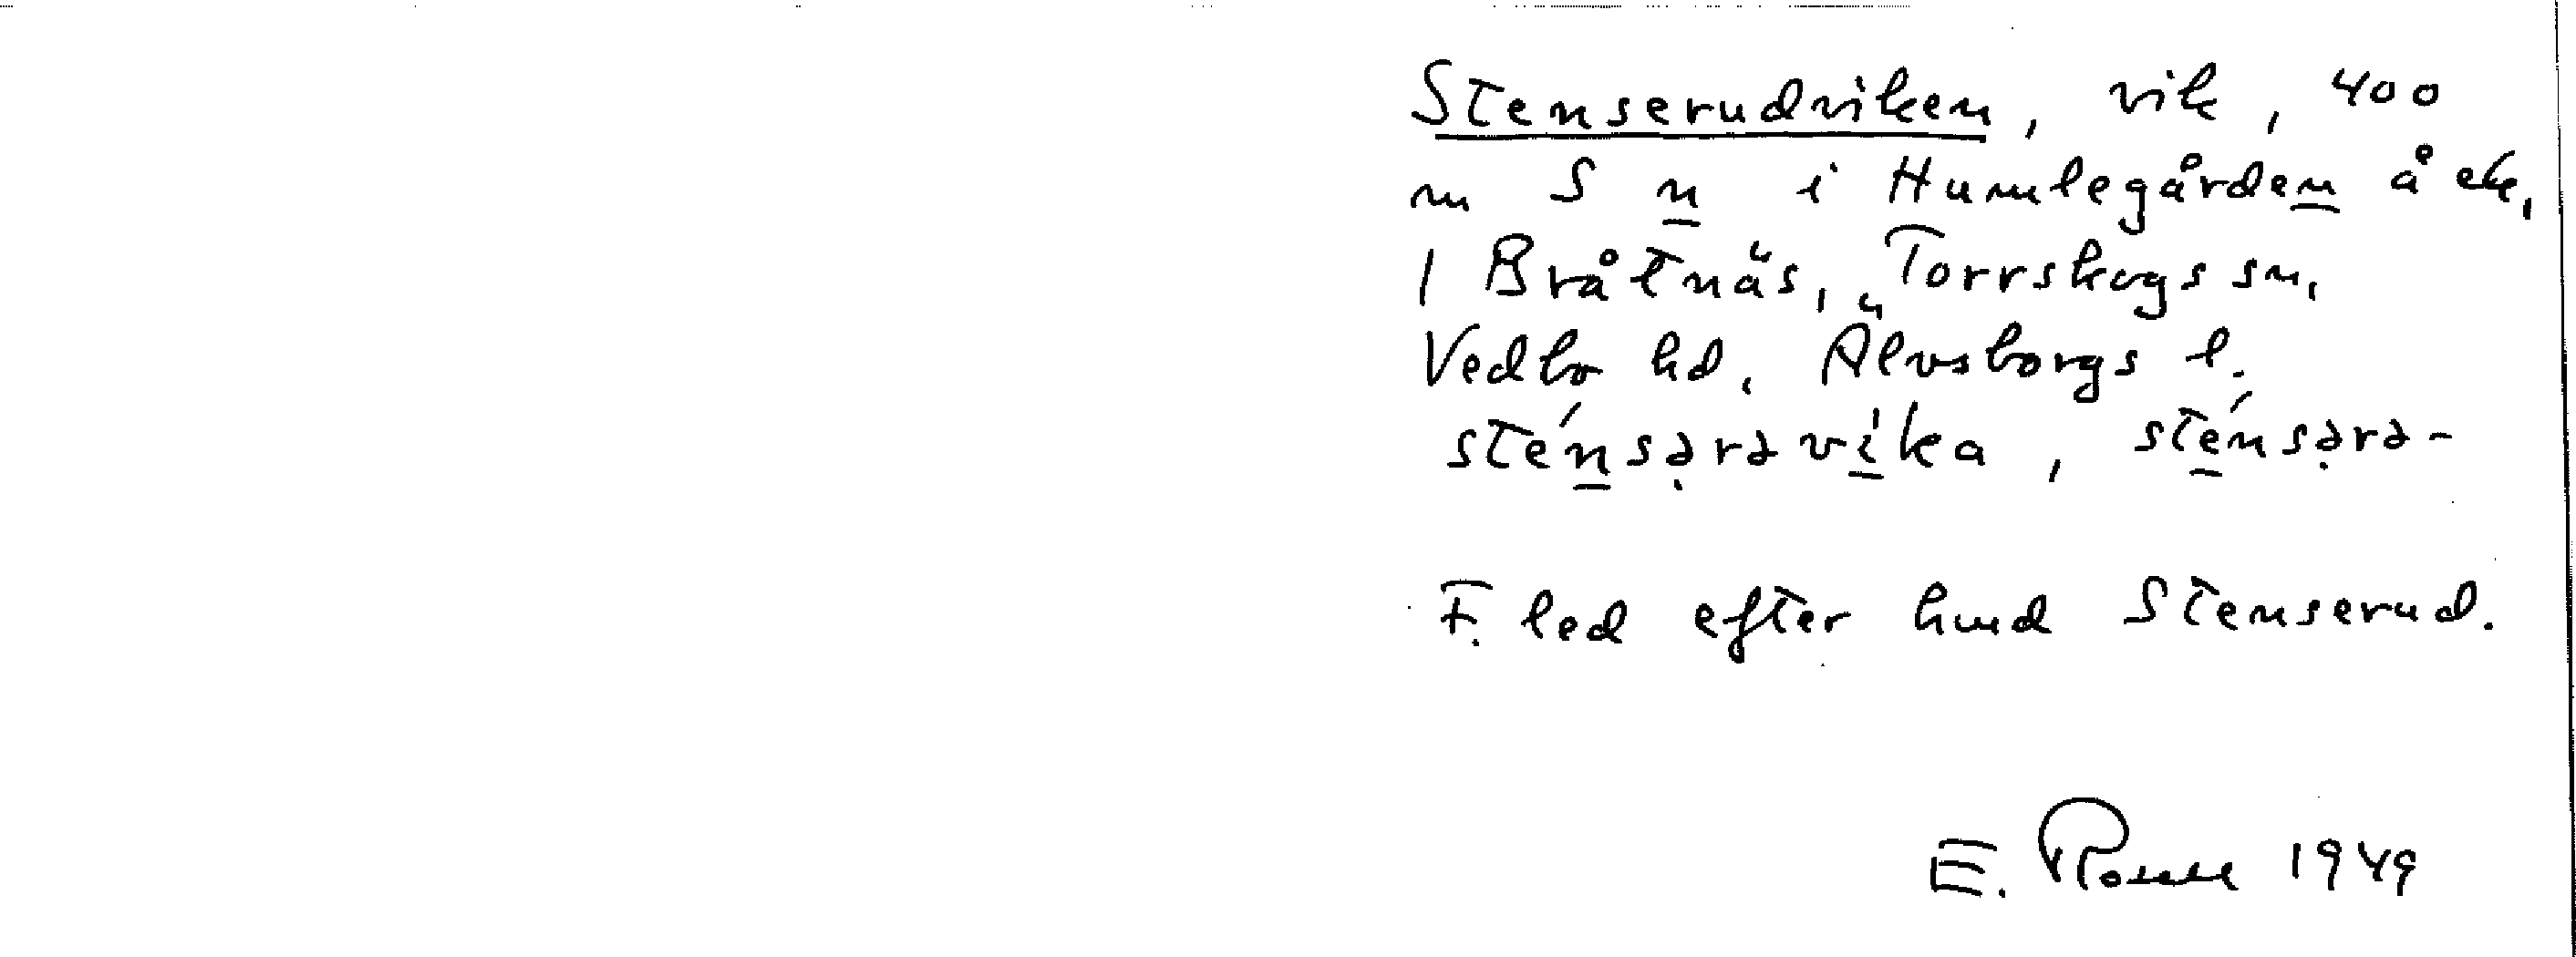 Stenserudviken, vik, 400
m S n i Humlegården å ek.
1 Bråtnäs, Torrskogs sn,
Vedbo hd, Älvsborgs l.
sténsərəvíka, sténsərə-
F. led efter hmd Stenserud.
E. 1949